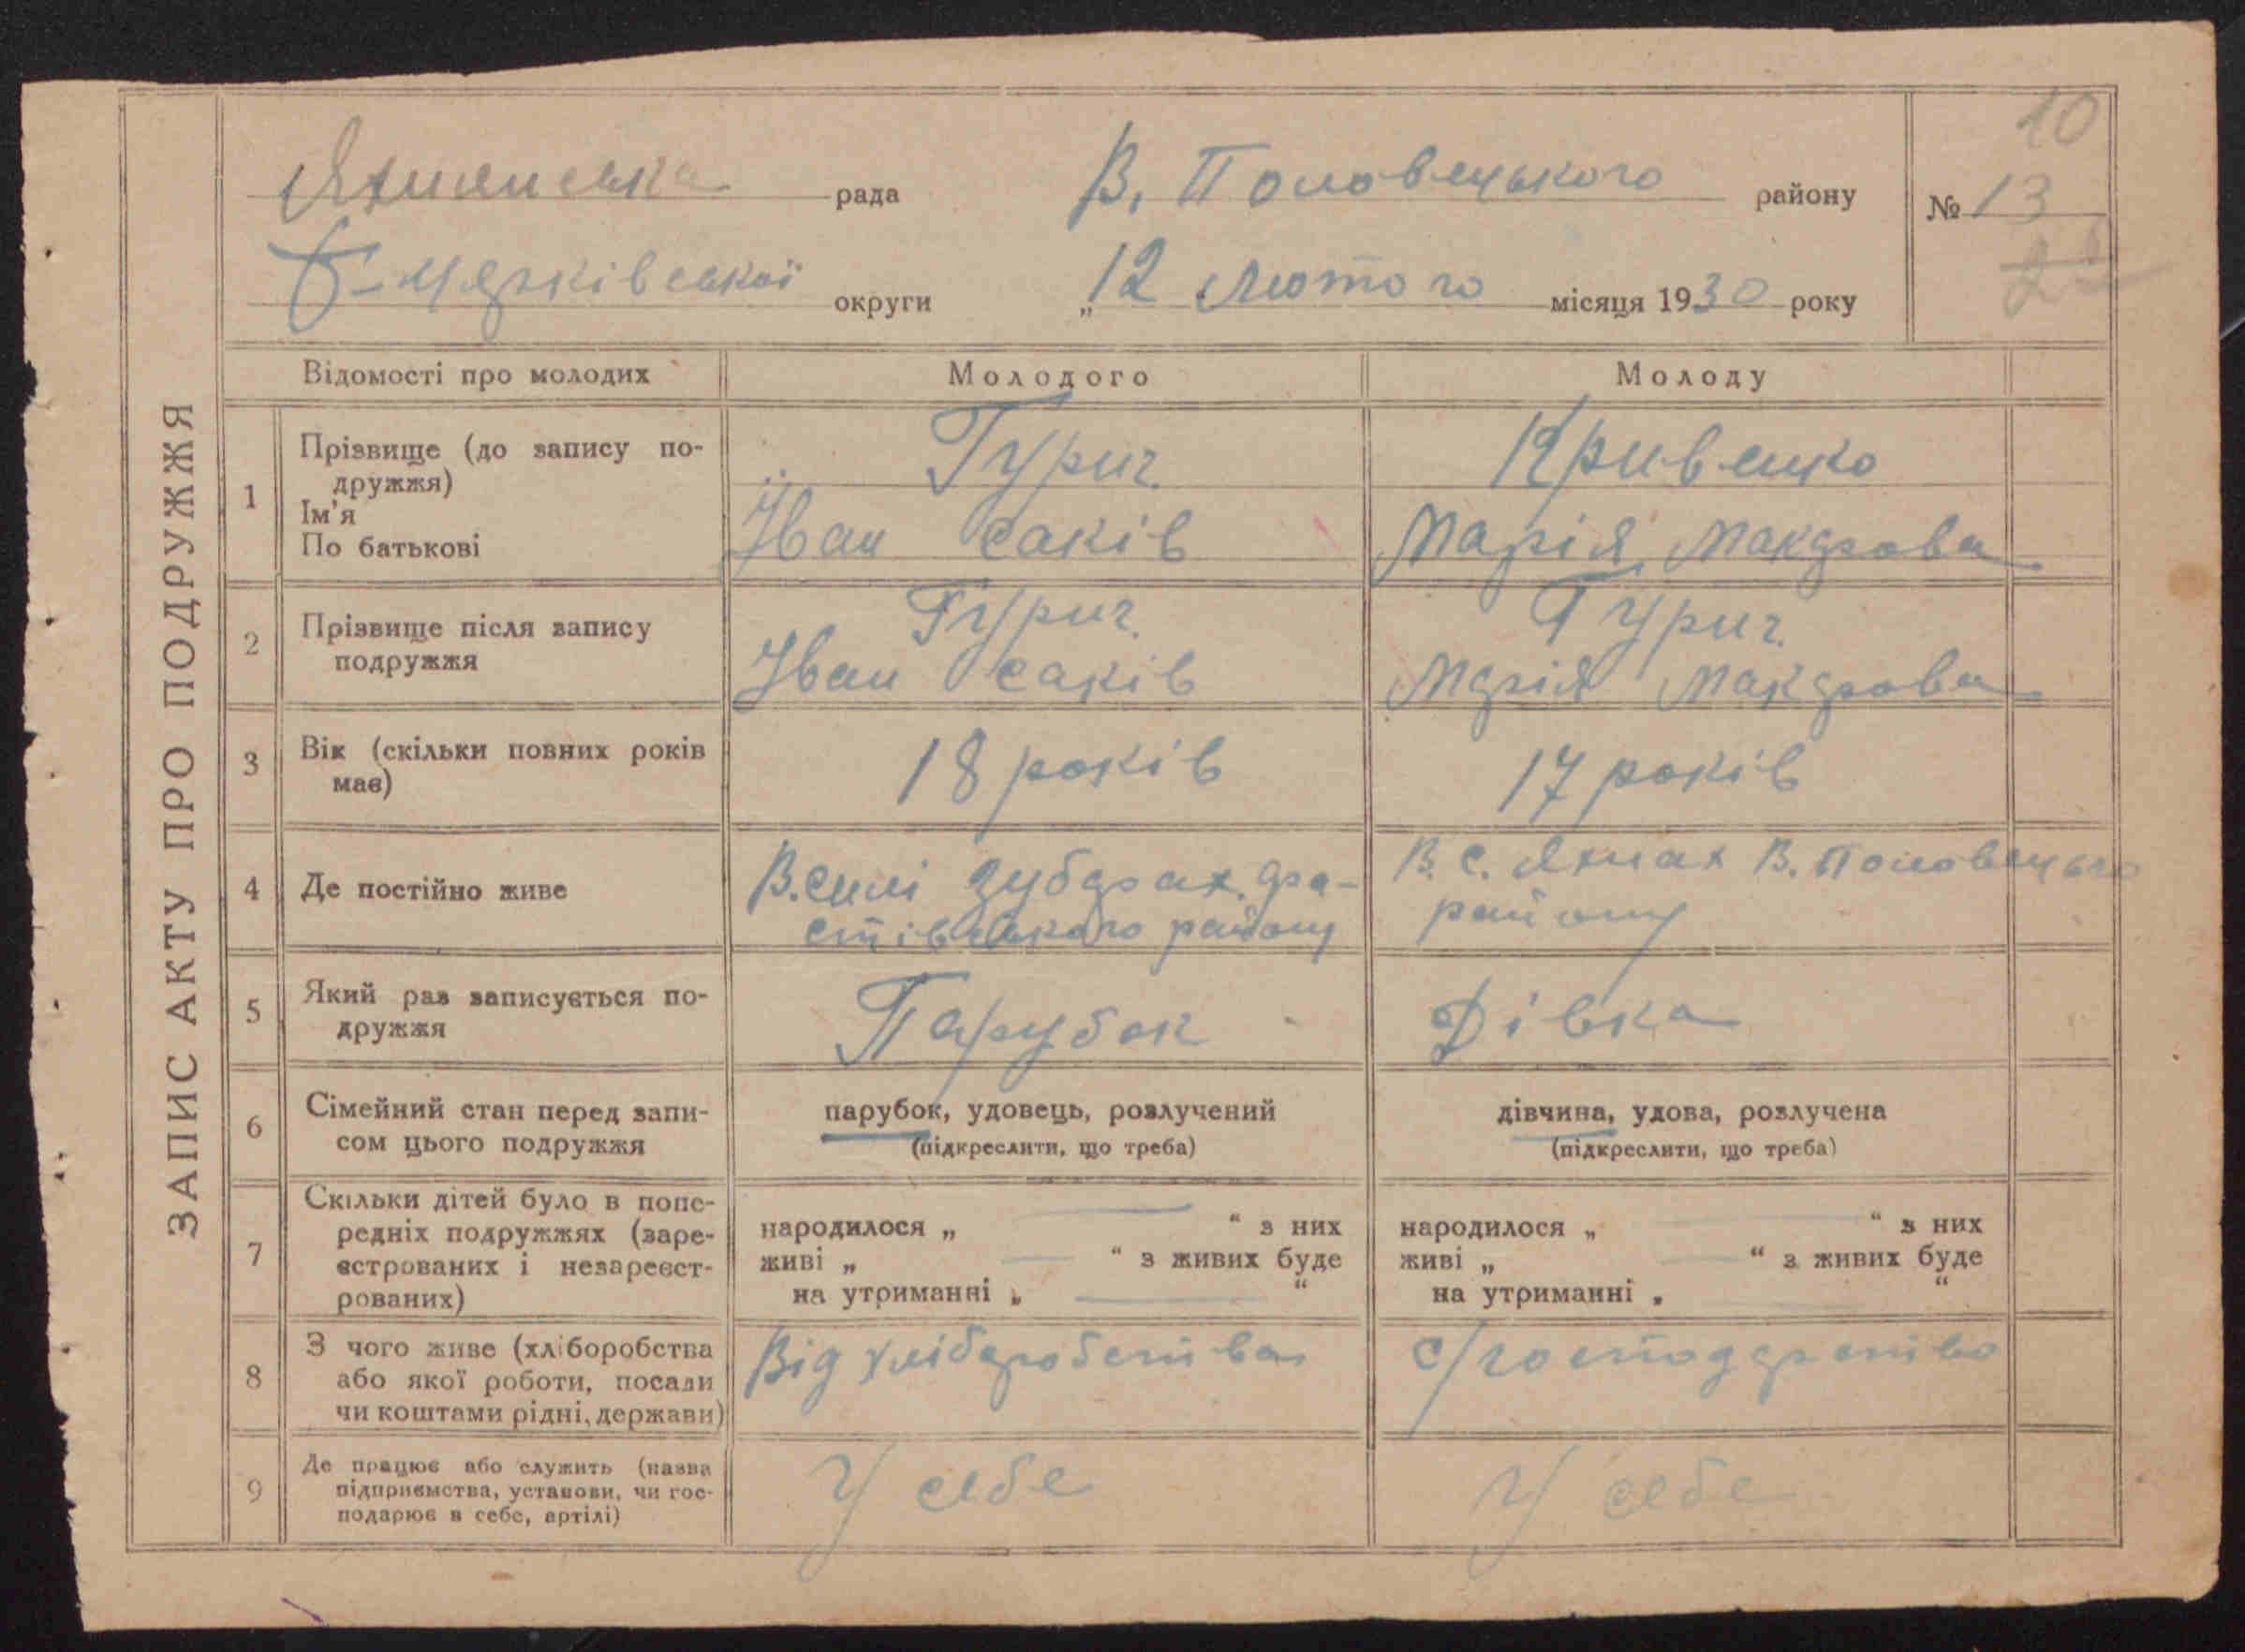 ЗАПИС АКТУ ПРО ПОДРУЖЖЯ
10
Яхнянська рада В. Половецького району № 13
Б-Церківської округи „12 Лютого місяця 1930 року
Відомості про молодих Молодого Молоду
1 Прізвище (до запису по-
дружжя)
Ім'я
По батькові
Гурич
Іван Ісаків
Кривенко
Марія Макарова
2 Прізвище після запису
подружжя
Гурич
Іван Ісаків
Гурич
Марія Макарова
3 Вік (скільки повних років
має)
18 років
17 років
4 Де постійно живе
В. селі Зубарах. Фа-
стівського району
В. С. Яхнах В. Половецького
району
5 Який раз записується по-
дружжя
Парубок
Дівка
6 Сімейний стан перед запи-
сом цього подружжя
парубок, удовець, розлучений
(підкреслити, що треба)
дівчина, удова, розлучена
(підкреслити, що треба)
7 Скільки дітей було в попе-
редніх подружжях (заре-
єстрованих і незареєст-
рованих)
народилося „ — “ з них
живі „ — “ з живих буде
на утриманні „ — “
народилося „ — “ з них
живі „ — “ з живих буде
на утриманні „ — “
8 З чого живе (хліборобства
або якої роботи, посади
чи коштами рідні, держави)
Від хліборобства
С/господарство
9 Де працює або служить (назва
підприємства, установи, чи гос-
подарює в себе, артілі)
У себе
У себе